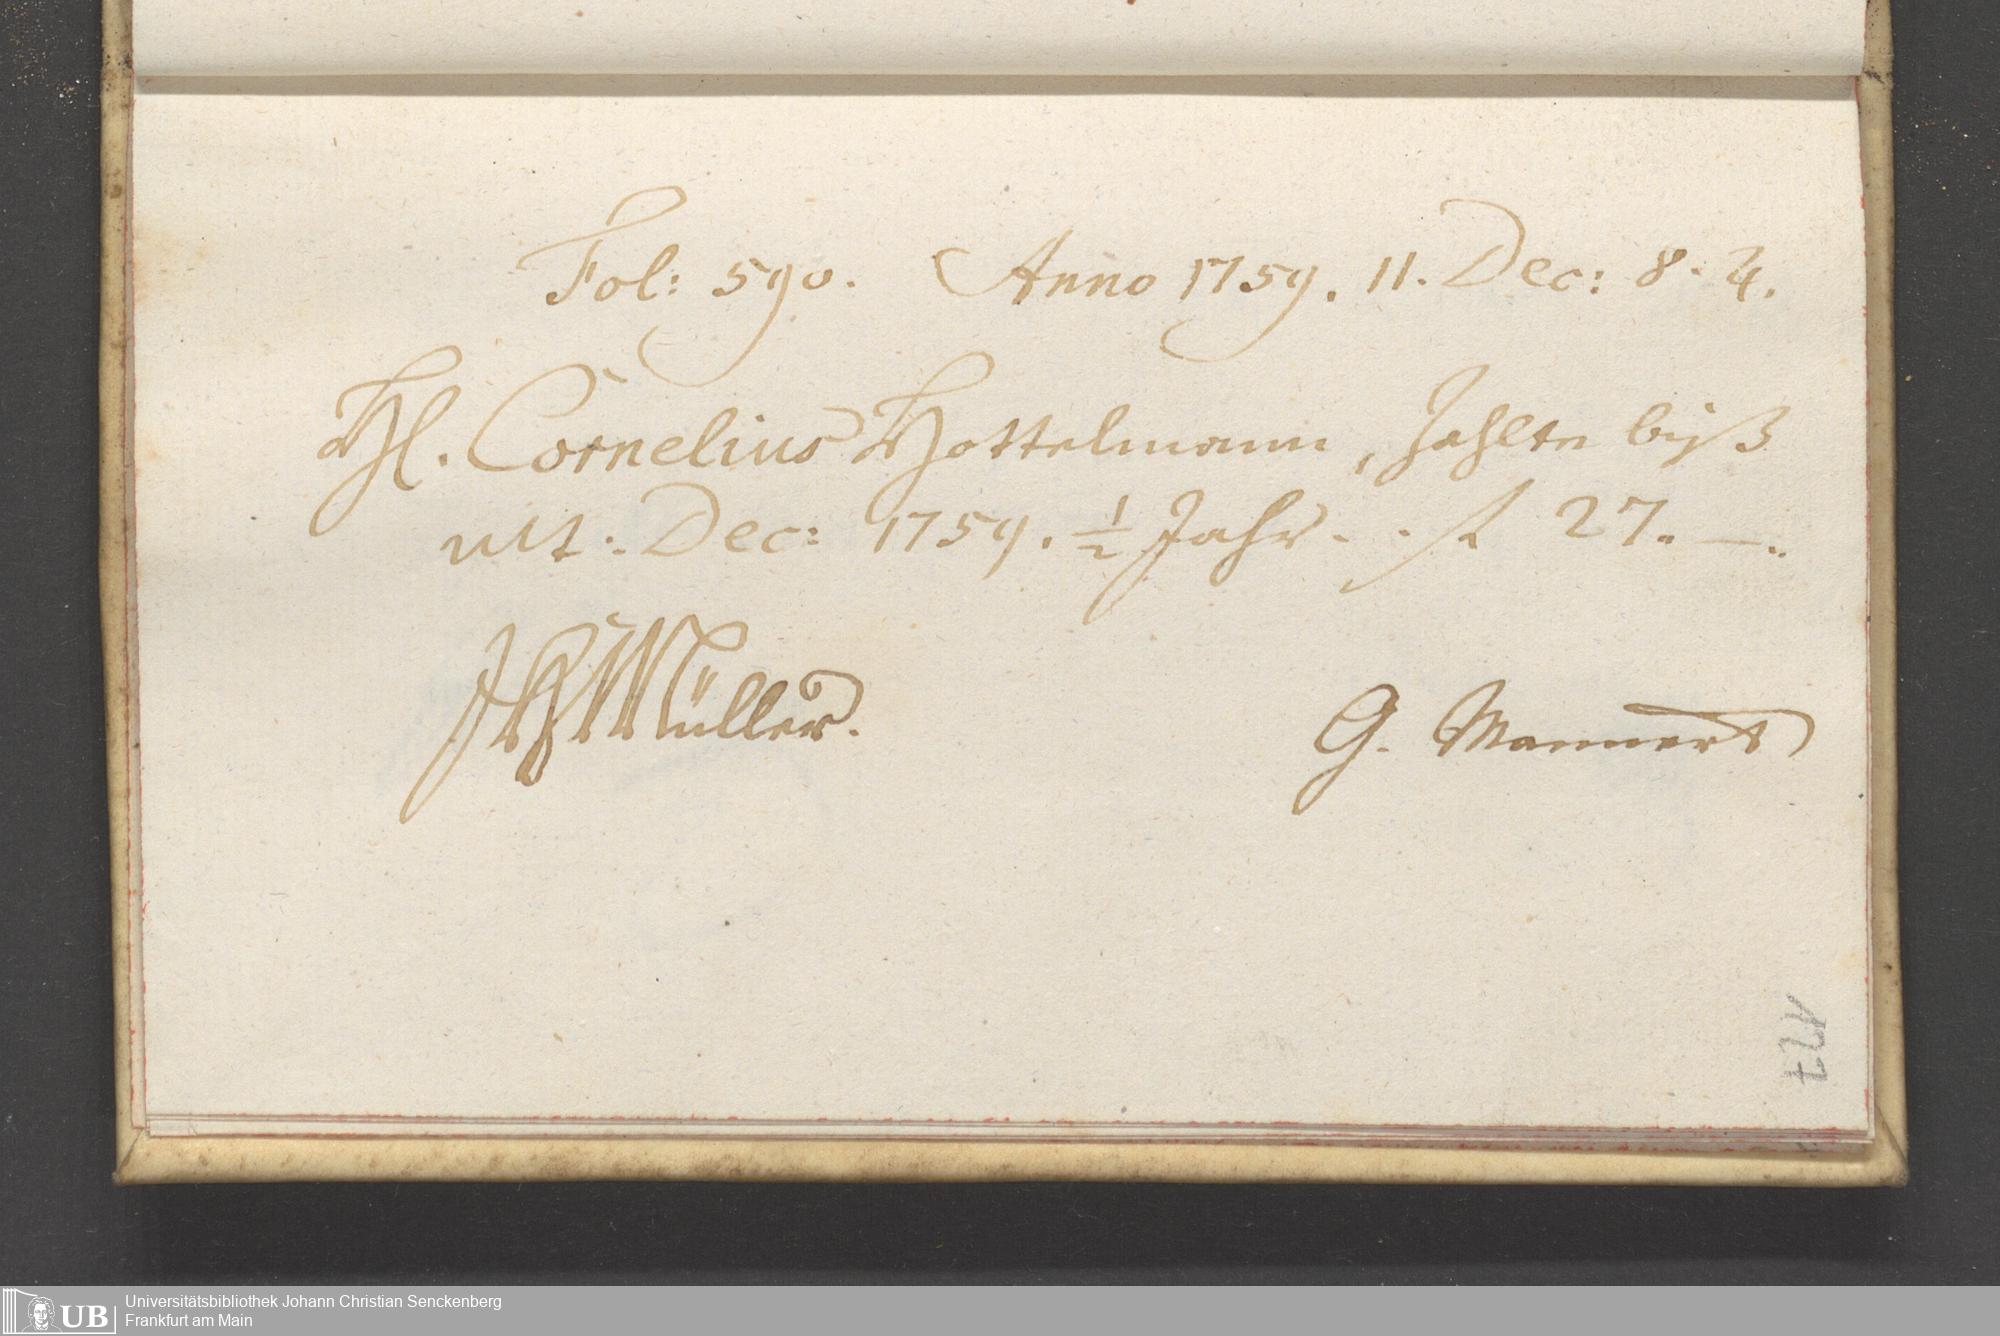 Fol: 590. Anno 1759. 11. Dec: 8. 4.
Hl. Cornelius Hottelmann, Zahlte biß
ult. Dec: 1759. ½ Jahr. . f 27. —.
JH Müller.
G. Mannert
177
UB
Universitätsbibliothek Johann Christian Senckenberg
Frankfurt am Main